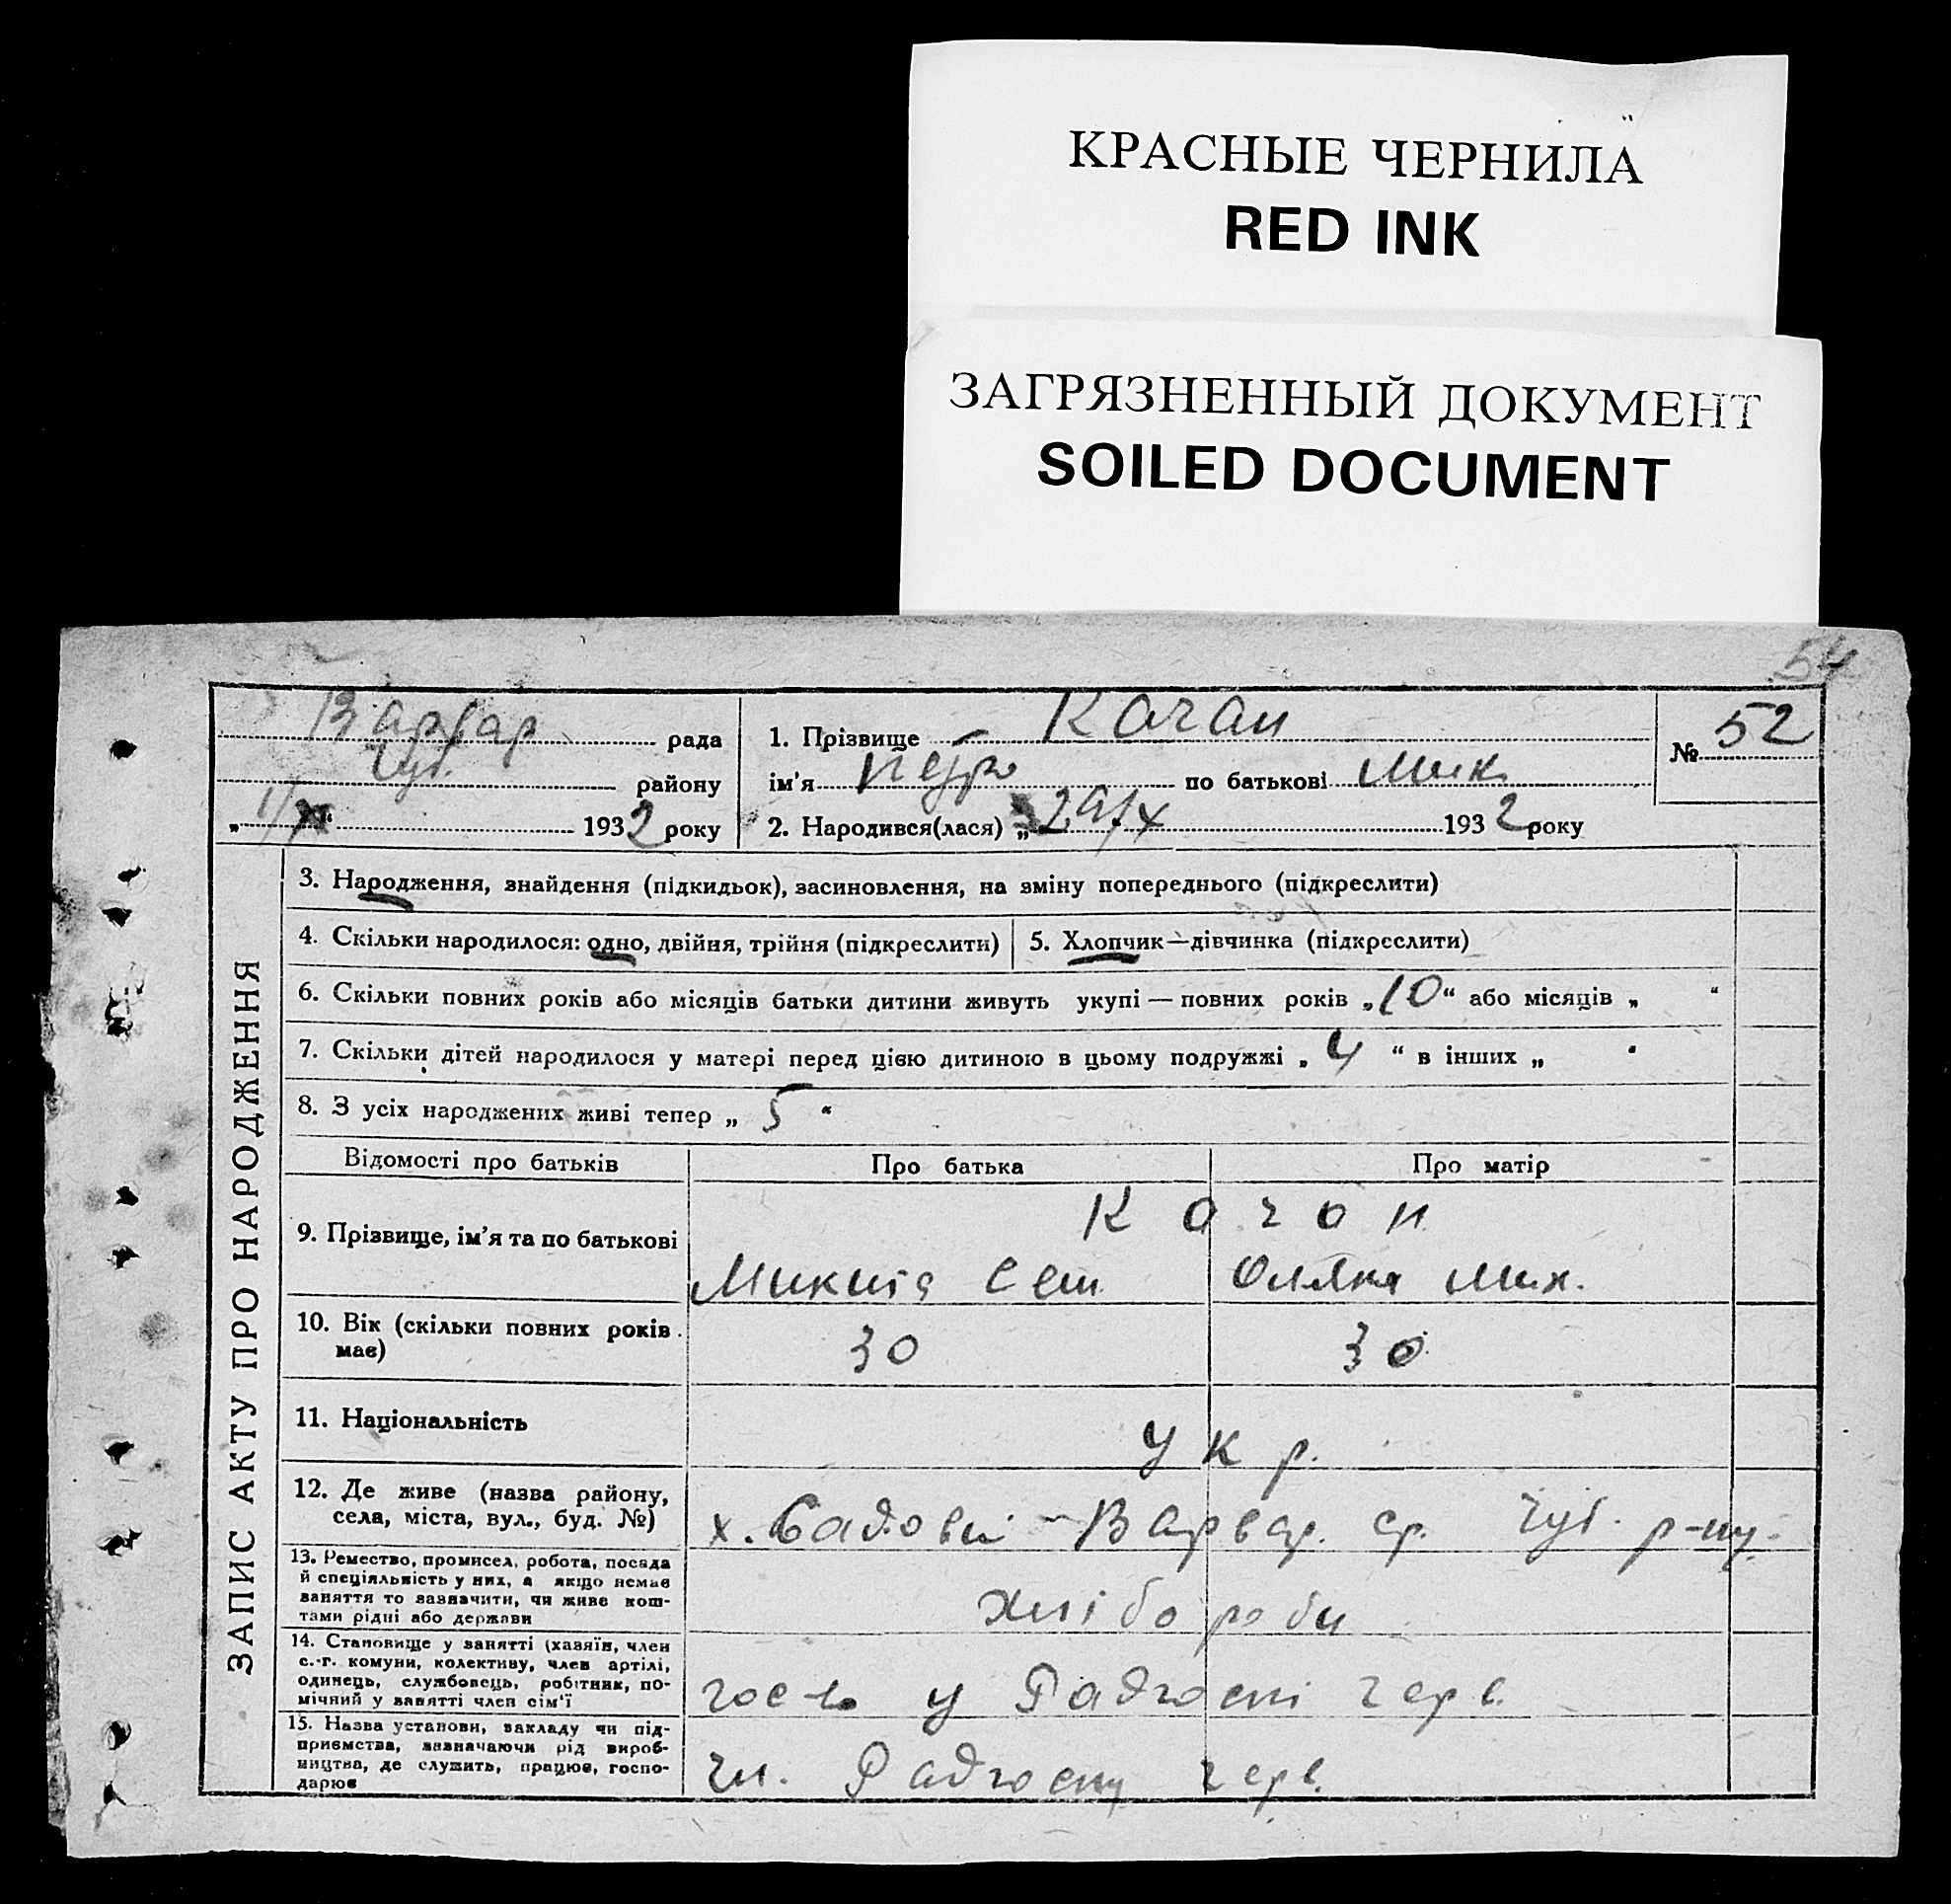 КРАСНЫЕ ЧЕРНИЛА
RED INK
ЗАГРЯЗНЕННЫЙ ДОКУМЕНТ
SOILED DOCUMENT
54
Варвар рада
Чуб. району
„ 1/XI “ 1932 року
1. Прізвище Качан
ім'я Петро по батькові Мик.
2. Народився(лася) „ 29/X 1932 року
№ 52
ЗАПИС АКТУ ПРО НАРОДЖЕННЯ
3. Народження, знайдення (підкидьок), засиновлення, на зміну попереднього (підкреслити)
4. Скільки народилося: одно, двійня, трійня (підкреслити)
5. Хлопчик—дівчинка (підкреслити)
6. Скільки повних років або місяців батьки дитини живуть укупі — повних років „10“ або місяців „ “
7. Скільки дітей народилося у матері перед цією дитиною в цьому подружжі „ 4 “ в інших „ “
8. З усіх народжених живі тепер „ 5 “
Відомості про батьків Про батька Про матір
9. Прізвище, ім'я та по батькові
Качан
Микита Сем. Оляна Мих.
10. Вік (скільки повних років має)
30 30
11. Національність
Укр.
12. Де живе (назва району,
села, міста, вул., буд. №)
х. Садовий - Варвар. ср. Чуб. р-ну.
13. Ремество, промисел, робота, посада
й спеціяльність у них, а якщо немає
заняття то зазначити, чи живе кош-
тами рідні або держави
Хлібороби
14. Становище у занятті (хазяїн, член
с.-г. комуни, колективу, член артілі,
одинець, службовець, робітник, по-
мічний у занятті член сім'ї
у Радгоспі Черв.
15. Назва установи, закладу чи під-
приємства, зазначаючи рід вироб-
ництва, де служить, працює, госпо-
дарює
чл. Радгоспу Черв.